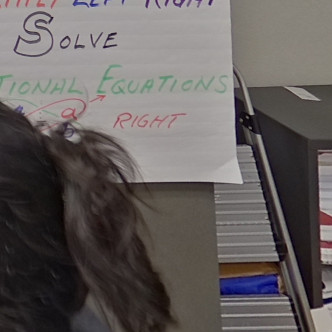 LEFT RIGHT
SOLVE
TIONAL EQUATIONS
a RIGHT
b